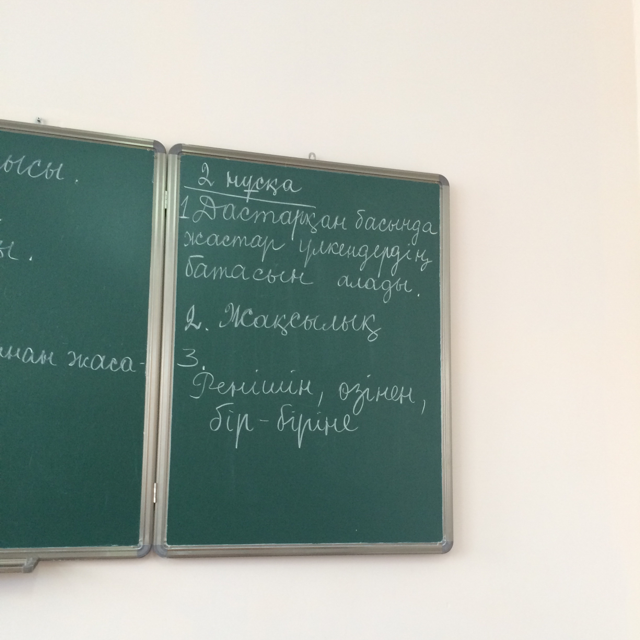 ысы.
ы.
нан жаса-
2 нұсқа
1 Дастарқан басында
жастар үлкендердің
батасын алады.
2. Жақсылық
3.
Ренішін, өзінен,
бір-біріне